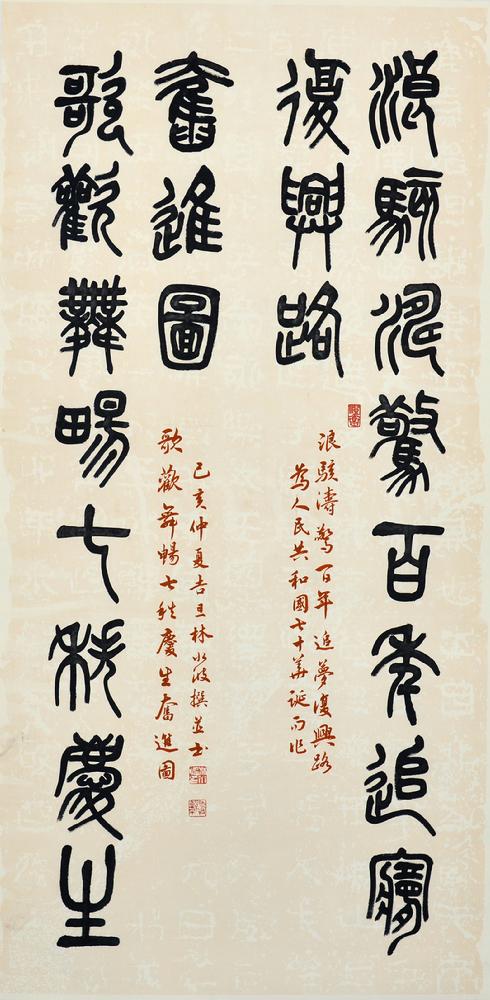 浪駭濤驚百年追夢
復興路
歌歡舞暢七秩慶生
奮進圖
浪駭濤驚百年追夢復興路
為人民共和國七十華誕而作
歌歡舞暢七秩慶生奮進圖
己亥仲夏吉旦林撰並書